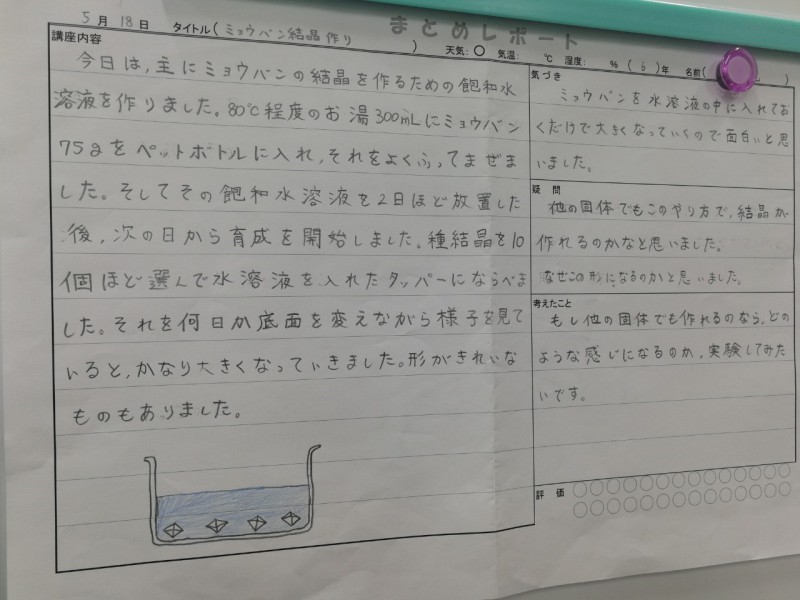 まとめレポート
5月18日 タイトル(ミョウバン結晶作り) 天気:○ 気温: ℃ 湿度: % (6)年 名前(
講座内容
今日は,主にミョウバンの結晶を作るための飽和水
溶液を作りました。80℃程度のお湯300mLにミョウバン
75gをペットボトルに入れ,それをよくふってまぜま
した。そしてその飽和水溶液を2日ほど放置した
後,次の日から育成を開始しました。種結晶を10
個ほど選んで水溶液を入れたタッパーにならべま
した。それを何日か底面を変えながら様子を見て
いると,かなり大きくなっていきました。形がきれいな
ものもありました。
気づき
ミョウバンを水溶液の中に入れてお
くだけで大きくなっていくので面白いと思
いました。
疑問
他の固体でもこのやり方で,結晶が
作れるのかなと思いました。
なぜこの形になるのかと思いました。
考えたこと
もし他の固体でも作れるのなら,どの
ような感じになるのか,実験してみた
いです。
評価